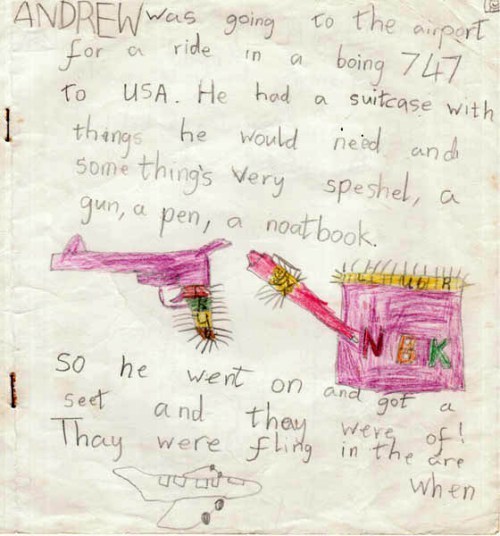 ANDREW was going to the airport
for a ride in a boing 747
to USA. He had a suitcase with
things he would need and
some thing's very speshel, a
gun, a pen, a noatbook.
NBK
So he went on and got a
seet and they were of!
Thay were fling in the are
when